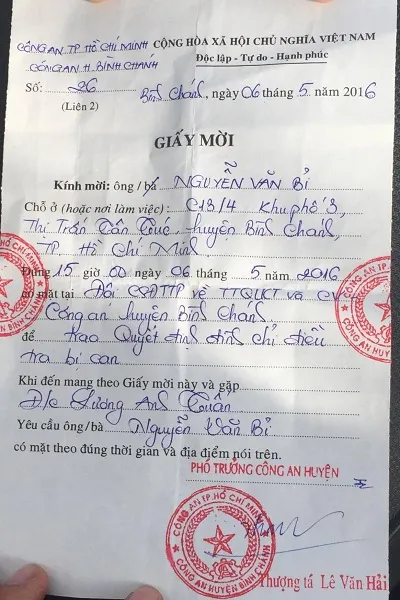 CÔNG AN TP HỒ CHÍ MINH CỘNG HÒA XÃ HỘI CHỦ NGHĨA VIỆT NAM
CÔNG AN H. BÌNH CHÁNH Độc lập - Tự do - Hạnh phúc
Số: 26 Bình Chánh, ngày 06 tháng 5 năm 2016
(Liên 2)
GIẤY MỜI
Kính mời: ông / bà NGUYỄN VĂN BỈ
Chỗ ở (hoặc nơi làm việc): C13/4 Khu phố 3,
Thị Trấn Tân Túc, huyện Bình Chánh,
TP. Hồ Chí Minh
Đúng 15 giờ 00 ngày 06 tháng 5 năm 2016
có mặt tại Đội CSĐTTP về TTQLKT và CV
Công an huyện Bình Chánh
để trao Quyết định đình chỉ điều
tra bị can
Khi đến mang theo Giấy mời này và gặp
Đ/c Lương Anh Tuấn
Yêu cầu ông/bà Nguyễn Văn Bỉ
có mặt theo đúng thời gian và địa điểm nói trên.
PHÓ TRƯỞNG CÔNG AN HUYỆN
CÔNG AN TP. HỒ CHÍ MINH
CÔNG AN HUYỆN BÌNH CHÁNH
Thượng tá Lê Văn Hải